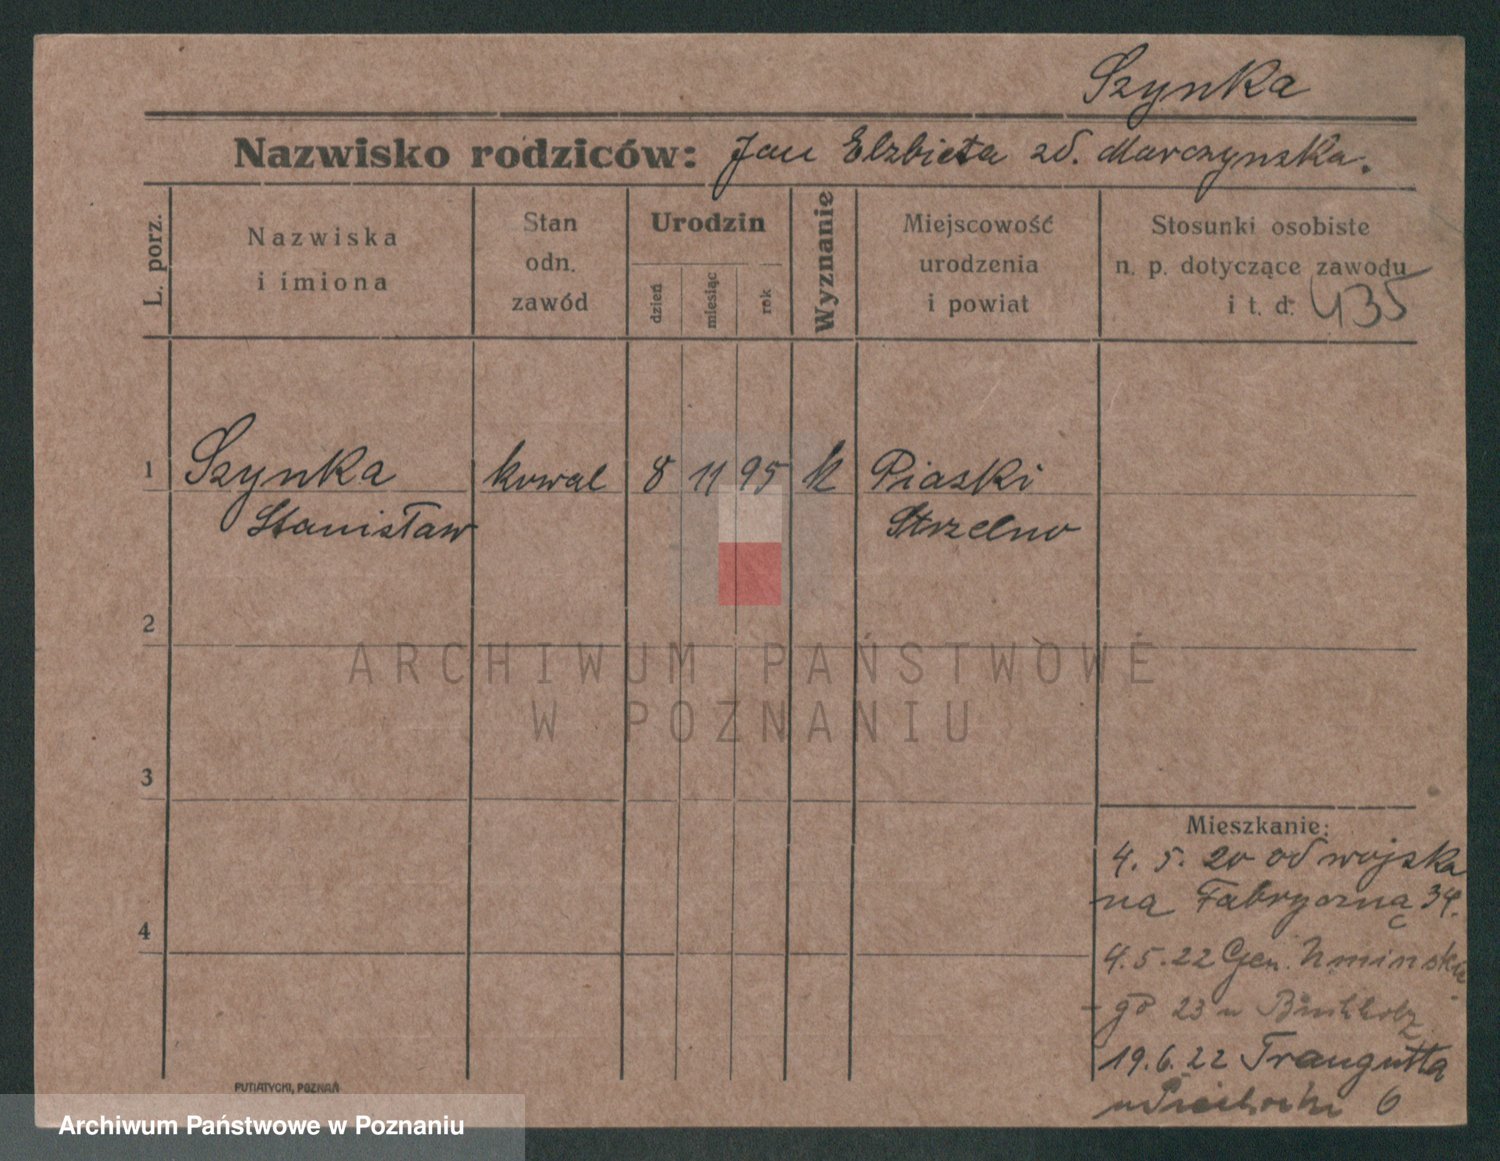 Szynka
Nazwisko rodziców: Jan Elzbieta zd. Marczynska.
L. porz.
Nazwiska
i imiona
Stan
odn.
zawód
Urodzin
dzień
miesiąc
rok
Wyznanie
Miejscowość
urodzenia
i powiat
Stosunki osobiste
n. p. dotyczące zawodu
i t. d. 435
1 Szynka kowal 8 11 95 k Piaski
Stanisław Strzelno
2
ARCHIWUM PAŃSTWOWE
W POZNANIU
3
Mieszkanie:
4. 5. 20 od wojska
na Fabryczną 34.
4
4.5.22 Gen. Uminskie
go 23 u Buchholz
19.6.22 Traugutta
u 6
PUTIATYCKI, POZNAŃ
Archiwum Państwowe w Poznaniu